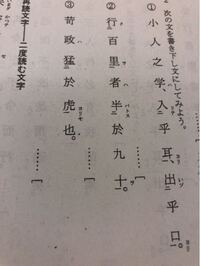 2 次の文を書き下し文にしてみよう。
① 小人之学、入乎耳、出乎口。
② 行百里者半於九十。
③ 苛政猛於虎也。
再読文字──二度読む文字